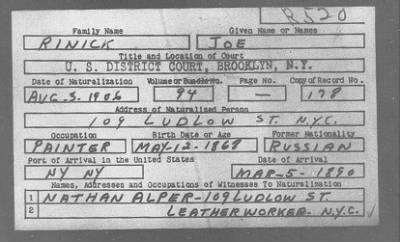 R520
Family Name Given Name or Names
RINICK JOE
Title and Location of Court
U. S. DISTRICT COURT, BROOKLYN, N.Y.
Date of Naturalization Volume or Bundle No. Page No. Copy of Record No.
AUG. 3. 1906 94 — 178
Address of Naturalized Person
109 LUDLOW ST. N.Y.C.
Occupation Birth Date or Age Former Nationality
PAINTER MAY-12-1867 RUSSIAN
Port of Arrival in the United States Date of Arrival
NY NY MAR-5-1890
Names, Addresses and Occupations of Witnesses To Naturalization
1 NATHAN ALPER-109 LUDLOW ST.
2 LEATHER WORKER. N.Y.C.